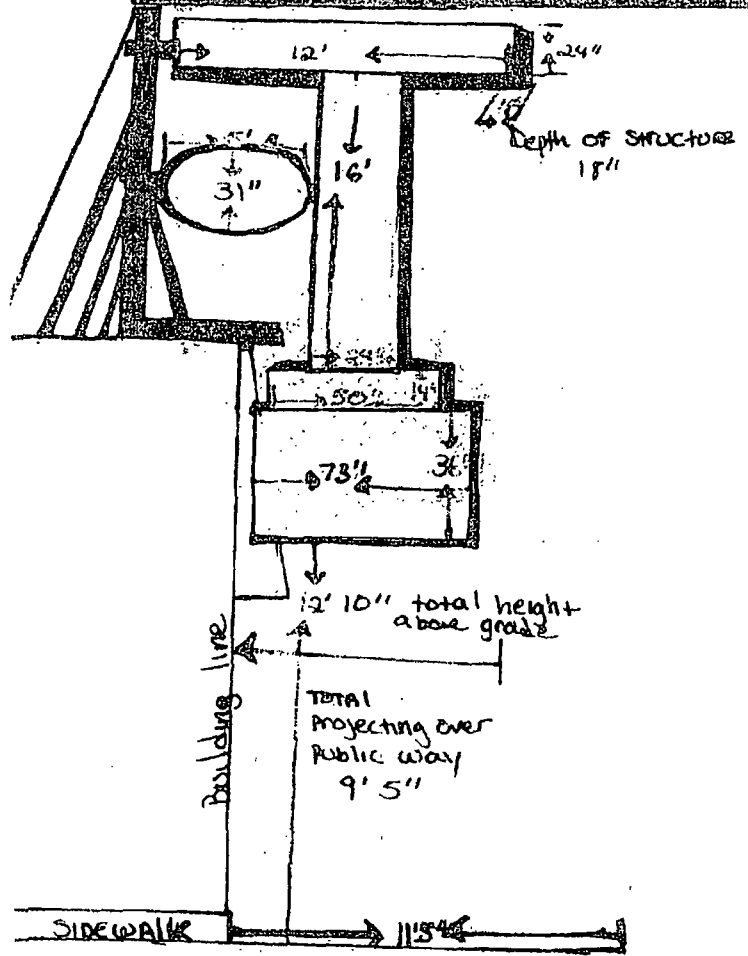 12'
24"
Depth of Structure
18"
16'
31"
24"
50"
14"
73"
36"
12' 10" total height
above grade
Building line
TOTAL
Projecting over
Public way
9' 5"
SIDEWALK